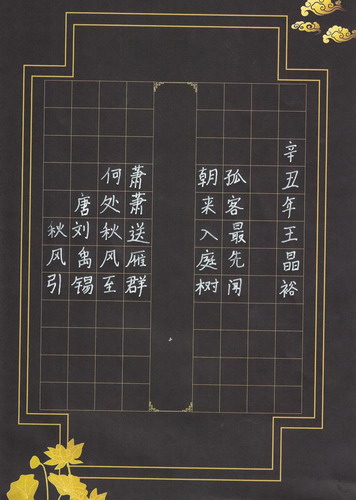 秋风引
唐刘禹锡
何处秋风至
萧萧送雁群
朝来入庭树
孤客最先闻
辛丑年王晶裕